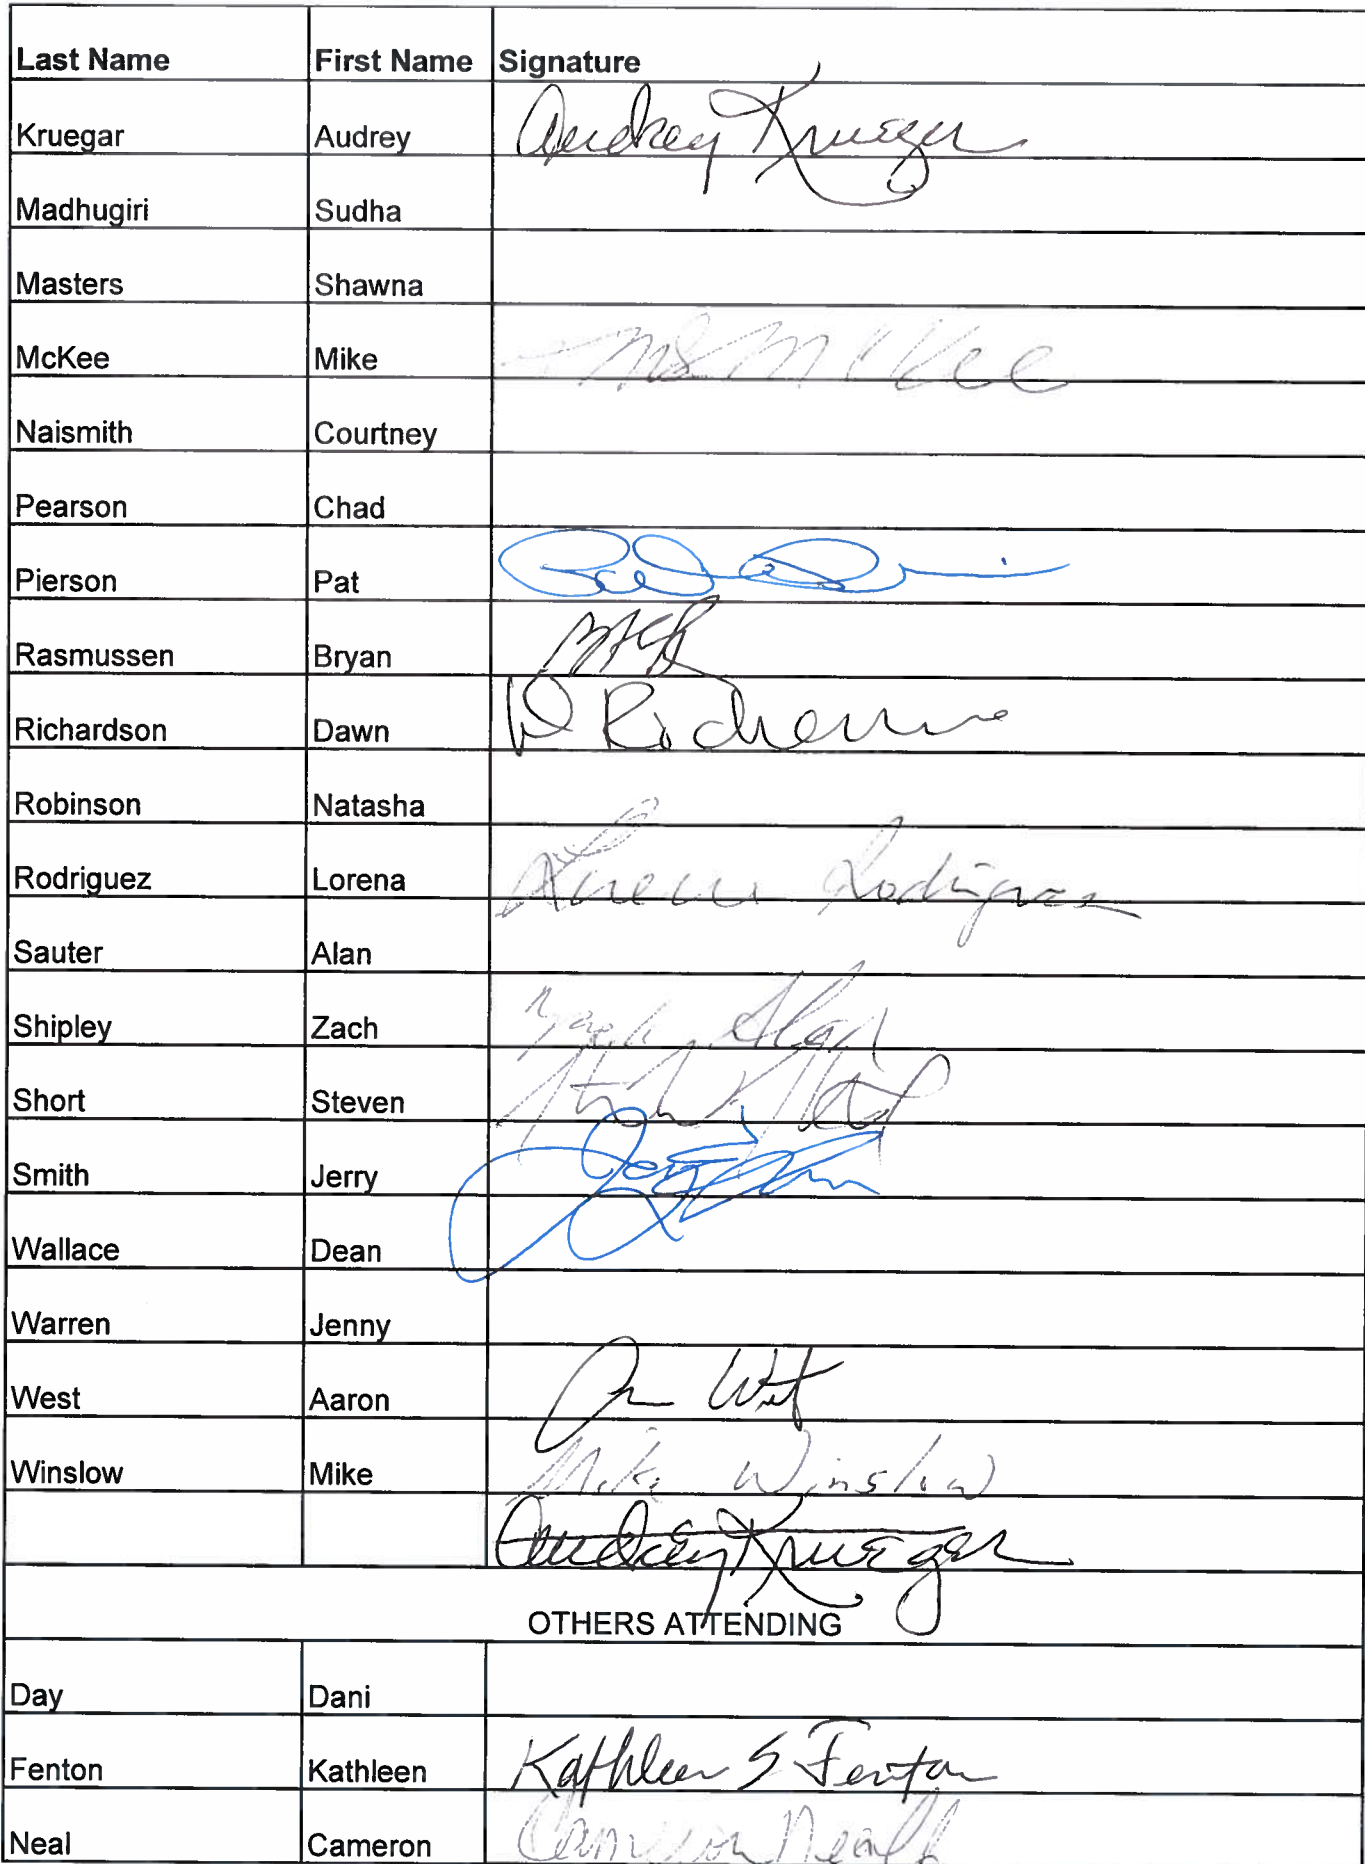 Last Name First Name Signature
Kruegar Audrey Audrey Krueger
Madhugiri Sudha
Masters Shawna
McKee Mike McKee
Naismith Courtney
Pearson Chad
Pierson Pat
Rasmussen Bryan
Richardson Dawn D
Robinson Natasha
Rodriguez Lorena Lorena Rodriguez
Sauter Alan
Shipley Zach Zach
Short Steven
Smith Jerry Jerry
Wallace Dean
Warren Jenny
West Aaron West
Winslow Mike Mike Winslow
Audrey Krueger
OTHERS ATTENDING
Day Dani
Fenton Kathleen Kathleen S Fenton
Neal Cameron Cameron Neal